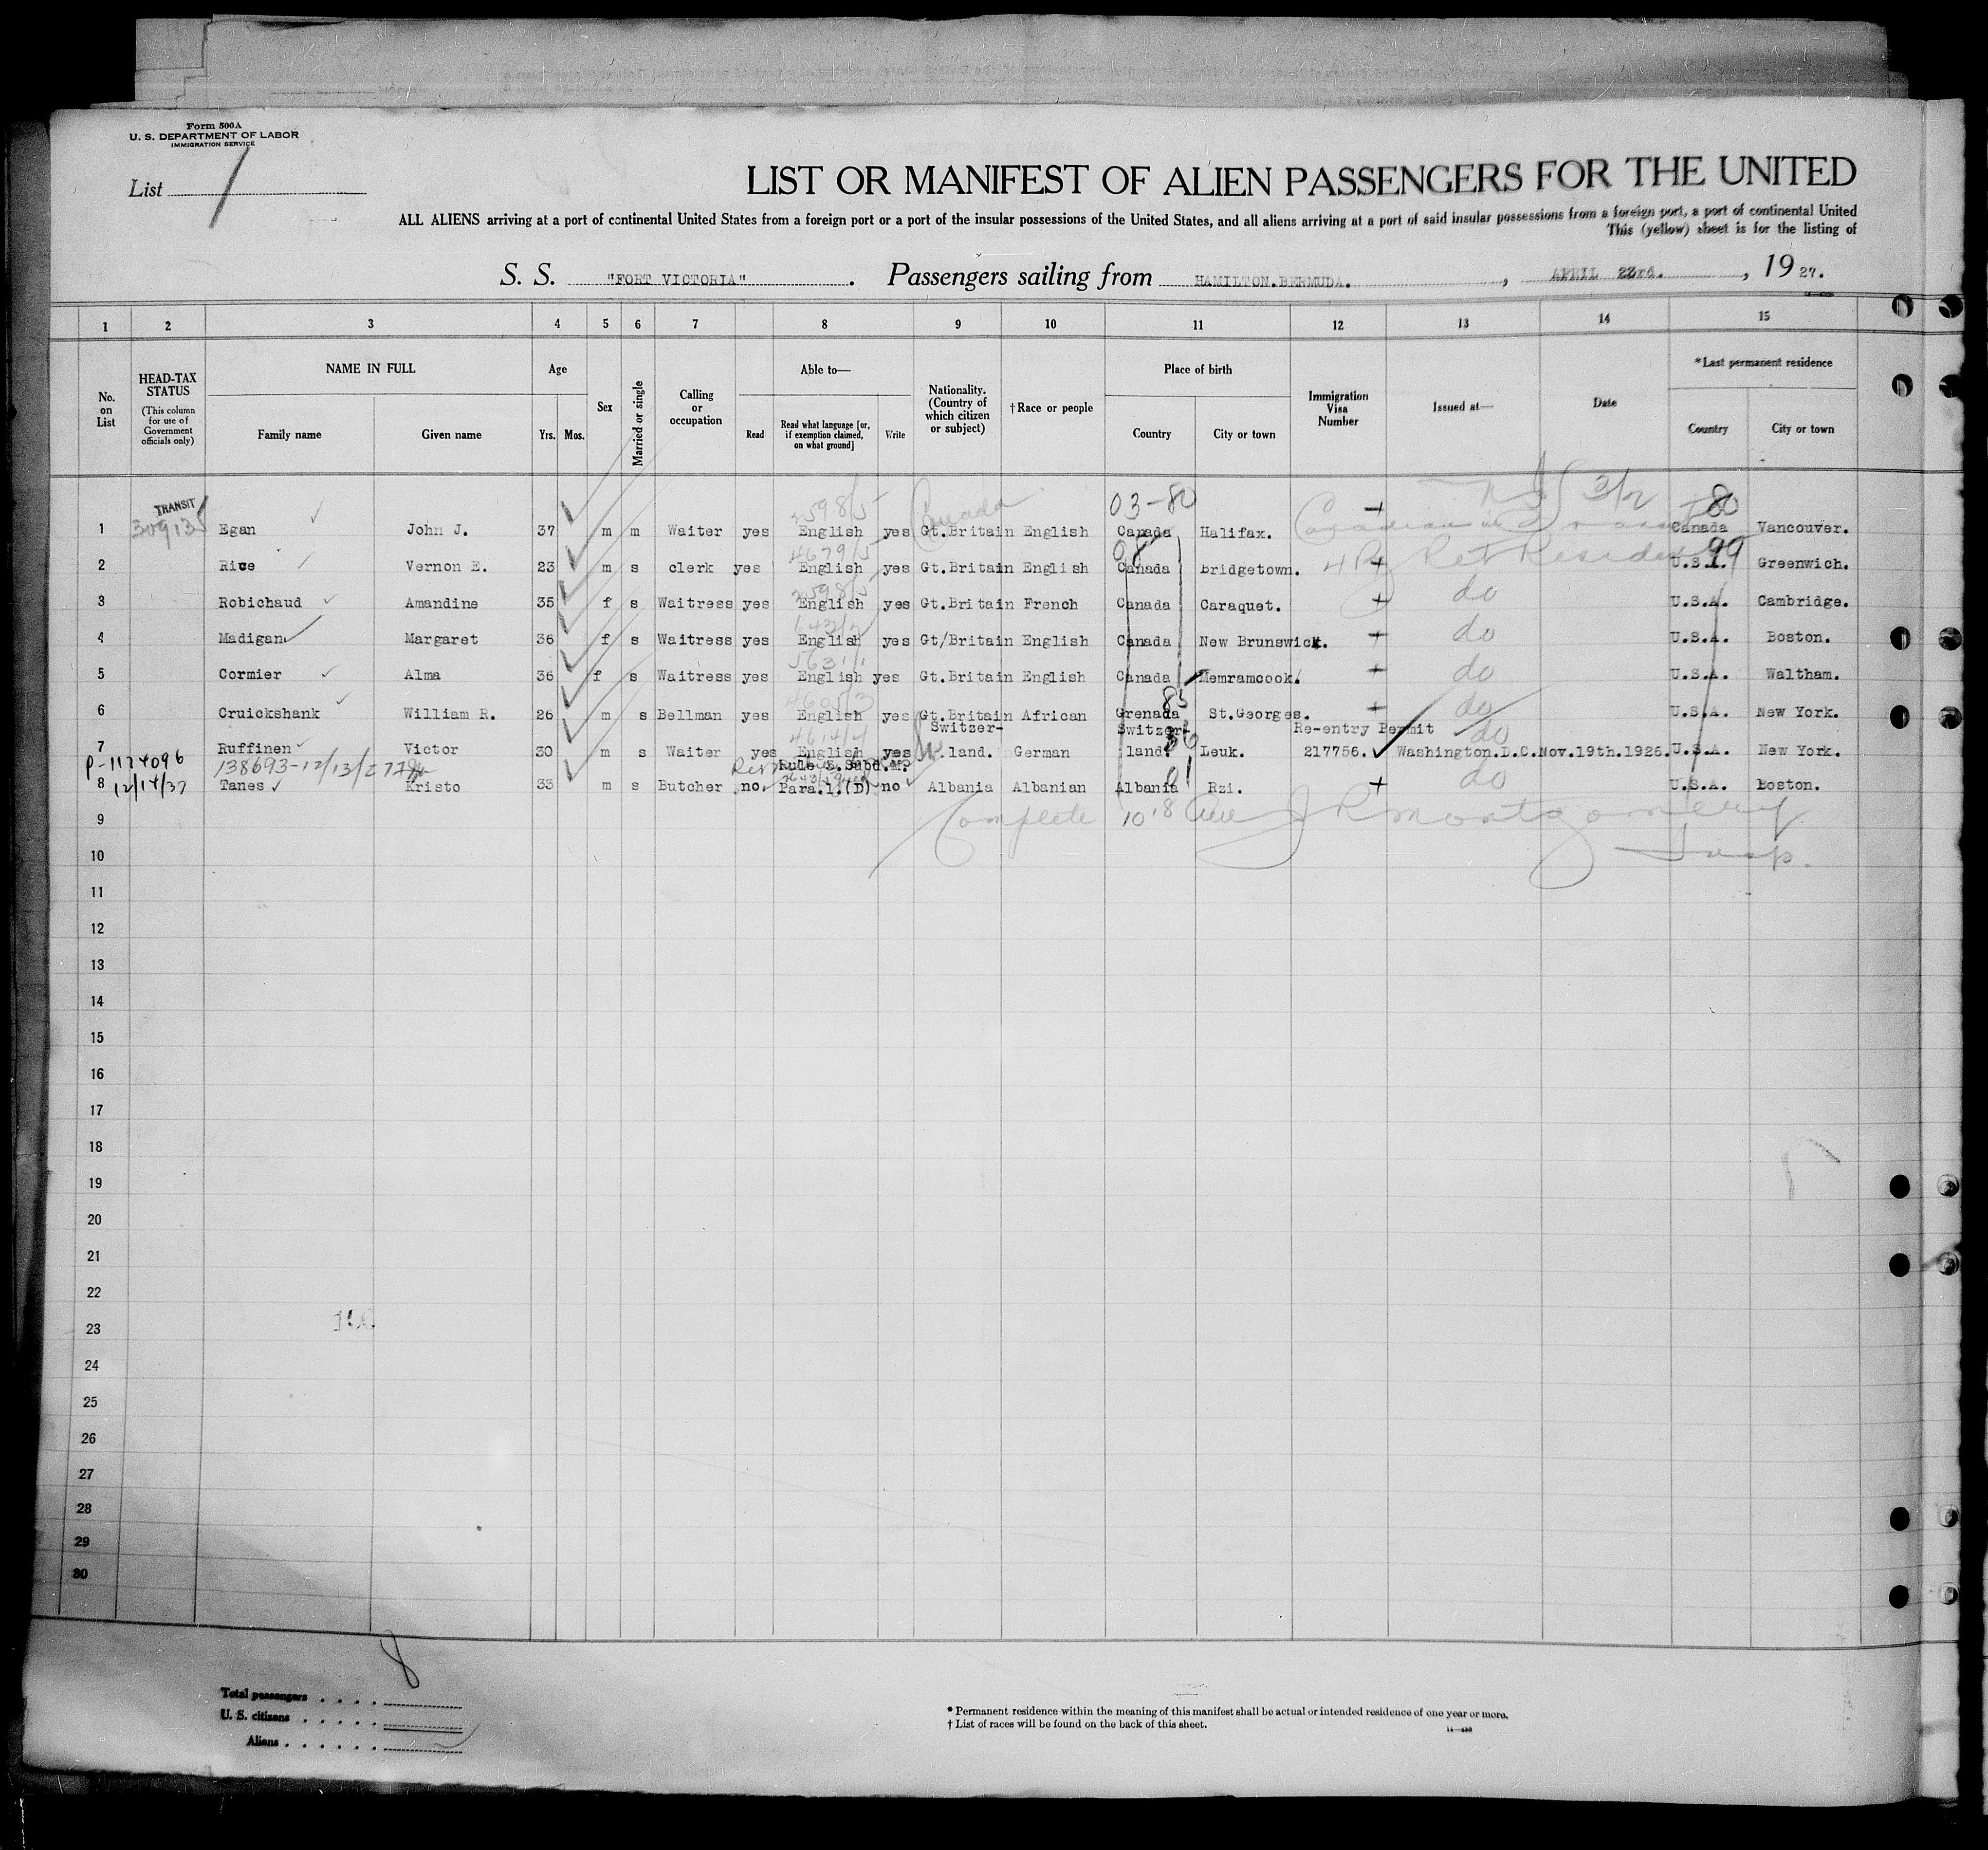 Form 500A
U. S. DEPARTMENT OF LABOR
IMMIGRATION SERVICE
List 1
LIST OR MANIFEST OF ALIEN PASSENGERS FOR THE UNITED
ALL ALIENS arriving at a port of continental United States from a foreign port or a port of the insular possessions of the United States, and all aliens arriving at a port of said insular possessions from a foreign port, a port of continental United
This (yellow) sheet is for the listing of
S. S. "FORT VICTORIA" . Passengers sailing from HAMILTON.BERMUDA. , APRIL 23rd. , 19 27.
1 2 3 4 5 6 7 8 9 10 11 12 13 14 15
No. on List
HEAD-TAX STATUS
(This column for use of Government officials only)
NAME IN FULL
Family name
Given name
Age
Yrs. Mos.
Sex
Married or single
Calling or occupation
Able to—
Read
Read what language [or, if exemption claimed, on what ground]
Write
Nationality. (Country of which citizen or subject)
†Race or people
Place of birth
Country
City or town
Immigration Visa Number
Issued at—
Date
*Last permanent residence
Country
City or town
03-80 3/2 80
TRANSIT
Canada
1 Egan John J. 37 m m Waiter yes English yes Gt.Britain English Canada Halifax. Canada Vancouver.
4679/5 99
2 Rice Vernon E. 23 m s clerk yes English yes Gt.Britain English Canada Bridgetown. U.S.A. Greenwich.
3 Robichaud Amandine 35 f s Waitress yes English yes Gt.Britain French Canada Caraquet. do U.S.A. Cambridge.
4 Madigan Margaret 36 f s Waitress yes English yes Gt/Britain English Canada New Brunswick. do U.S.A. Boston.
5 Cormier Alma 36 f s Waitress yes English yes Gt.Britain English Canada Memramcook. do U.S.A. Waltham.
83
6 Cruickshank William R. 26 m s Bellman yes English yes Gt.Britain African Grenada St.Georges. do U.S.A. New York.
Switzer- Switzer- Re-entry Permit do
7 Ruffinen Victor 30 m s Waiter yes English yes land. German land. Leuk. 217756. Washington.D.C. Nov.19th.1926. U.S.A. New York.
P-1174096 138693-12/13/27
Rule
12/14/37
8 Tanes Kristo 33 m s Butcher no. Para.1.(D) no Albania Albanian Albania Rzi. do U.S.A. Boston.
9 Complete JR Montgomery
10 Insp.
11
12
13
14
15
16
17
18
19
20
21
22
23
24
25
26
27
28
29
30
8
Total passengers . . . .
U. S. citizens . . . . .
Aliens . . . . . .
* Permanent residence within the meaning of this manifest shall be actual or intended residence of one year or more.
† List of races will be found on the back of this sheet.